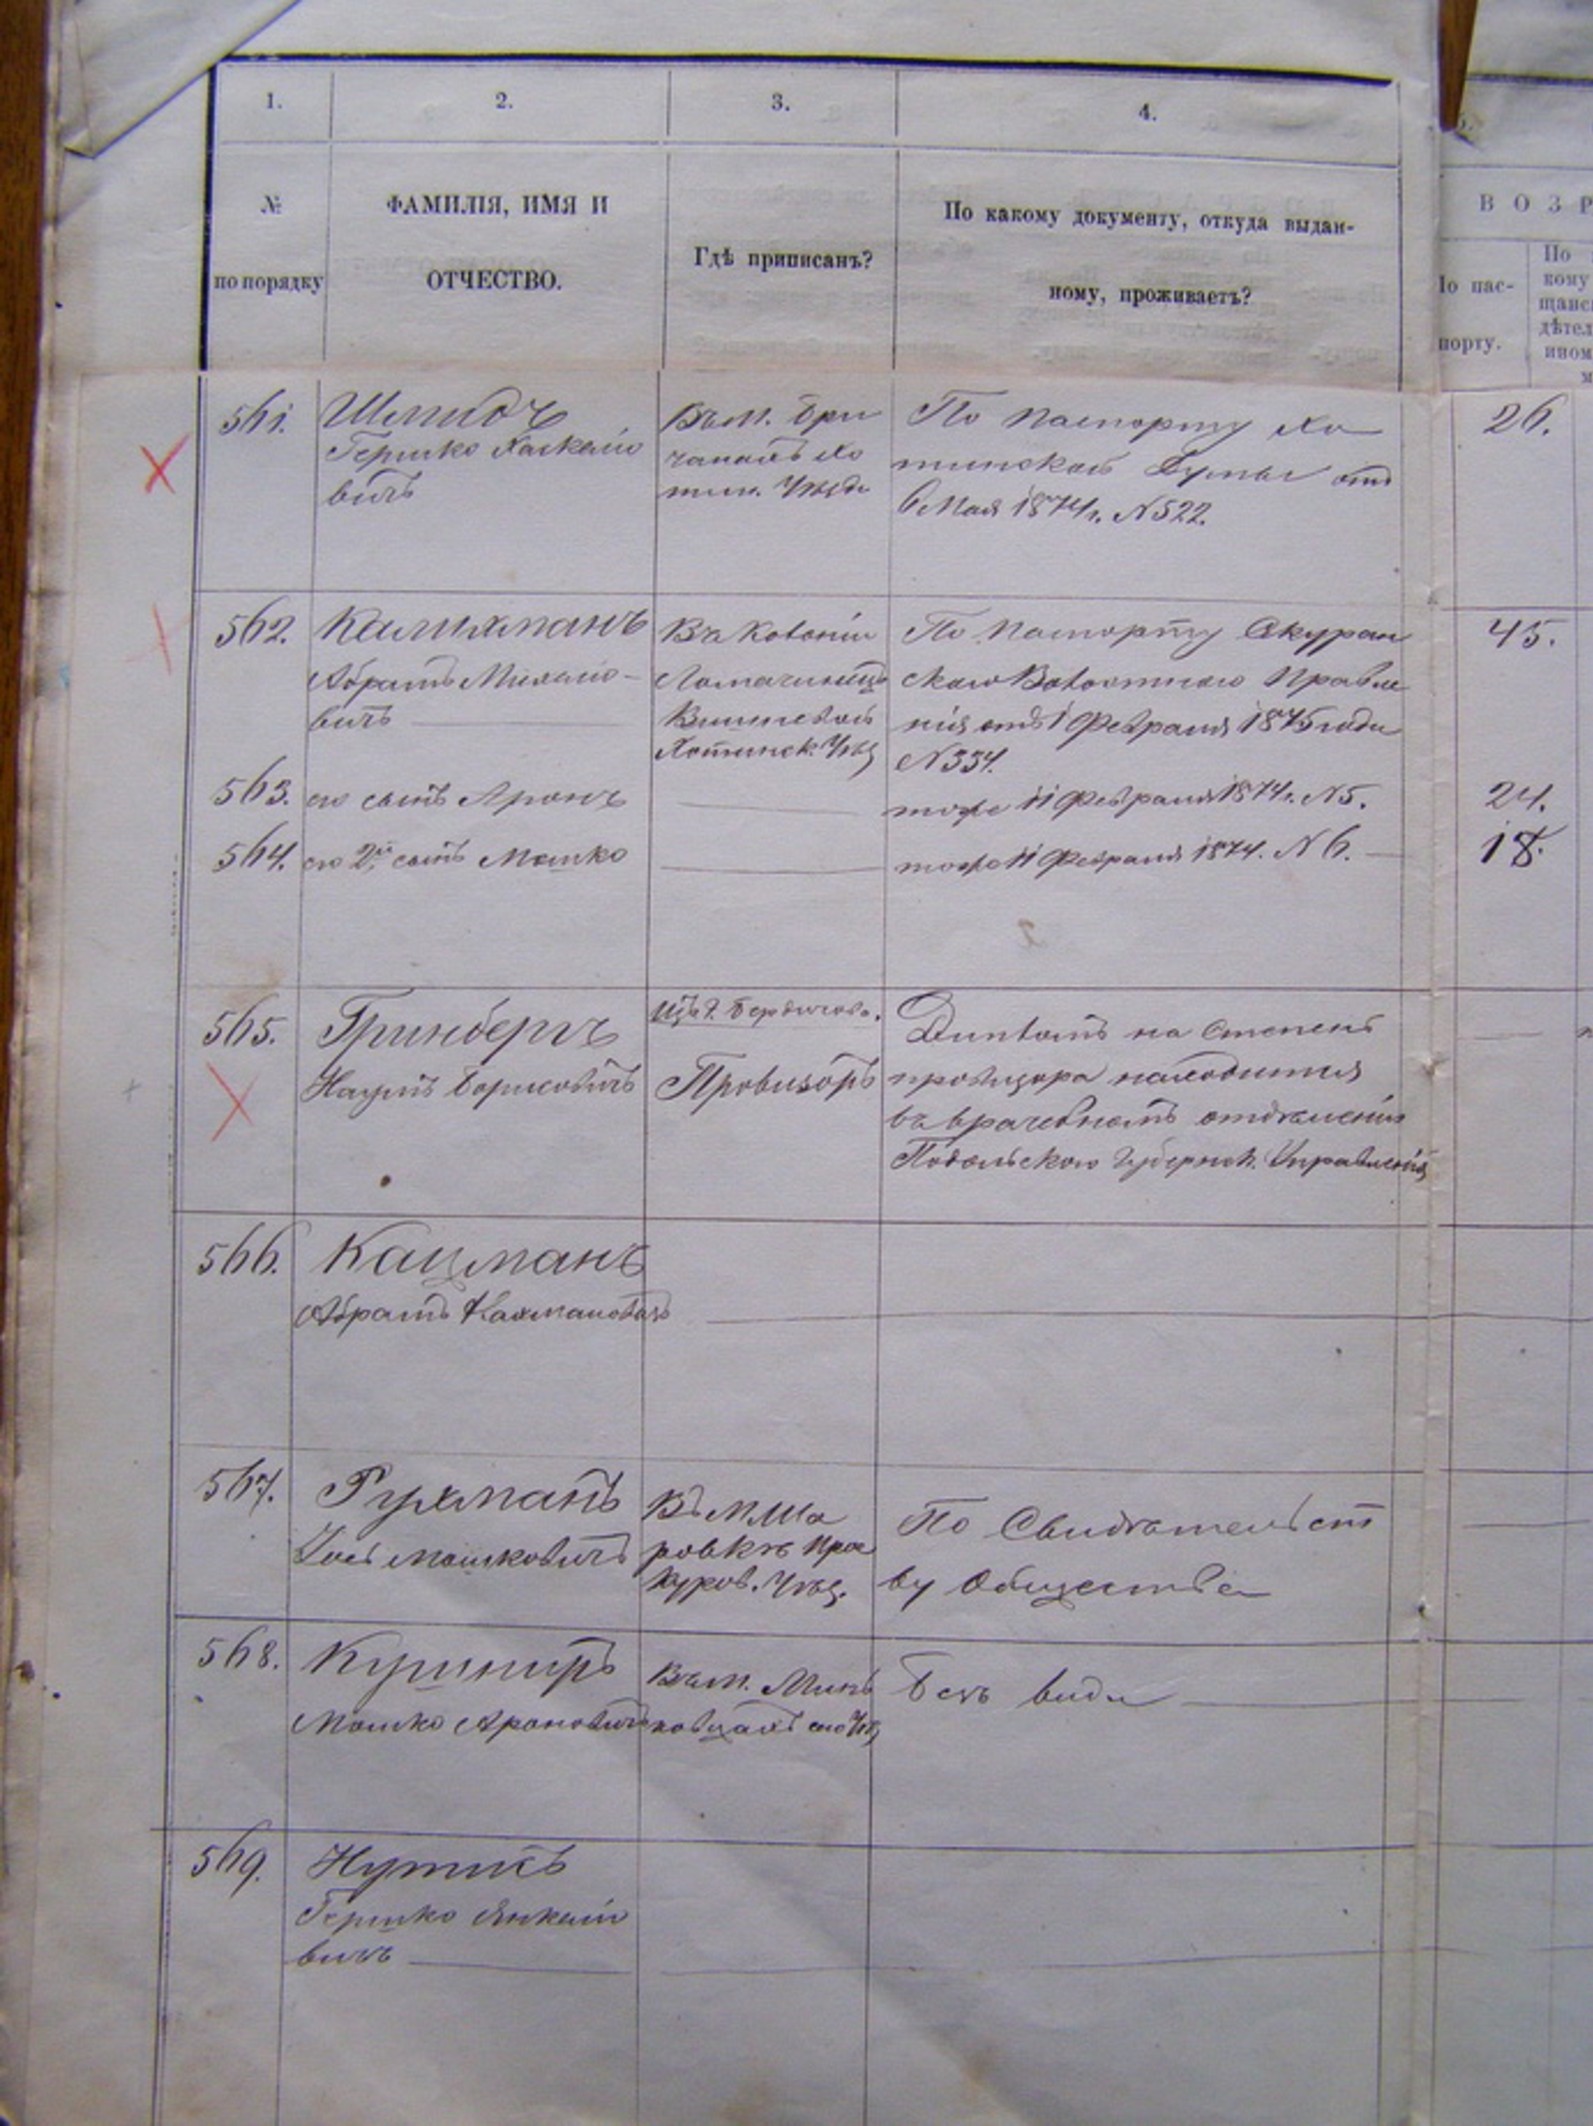 1.
2.
3.
4.
№
по порядку
ФАМИЛІЯ, ИМЯ И
ОТЧЕСТВО.
Гдѣ приписанъ?
По какому документу, откуда выдан-
ному, проживаетъ?
ВОЗР
По пас-
порту.
По
кому
щанс
дѣтел
ином
561.
Шмидъ
Гершко Хаскеліо
вичъ
Въ м. Бри
чанахъ Хо
тин. Уѣзда
По паспорту Хо
тинской Думы отъ
6 Мая 1874 г. N 522.
26.
562.
Калихманъ
Абрамъ Михеліо-
вичъ
Въ Колоніи
Ломачинецъ
Хотинск. Уѣз
По паспорту Секурян
скаго Волостнаго Правле
нія отъ 1 Февраля 1875 года
N 334.
45.
563.
его сынъ Аронъ
тоже 11 Февраля 1874 г. N 5.
24.
564.
его 2й сынъ Мошко
тоже 11 Февраля 1874. N 6.
18.
565.
Гринбергъ
Наумъ Борисовичъ
Изъ г. Бердичева.
Провизоръ
Дипломъ на степень
провизора находится
въ врачебномъ отдѣленіи
Подольскаго Губернск. Управленія
566.
Кацманъ
Абрамъ Нахмановичъ
567.
Рухманъ
Іось Мошковичъ
Въ м. Ша
ровкѣ Прос
куров. Уѣзд.
По Свидѣтельст
ву Общества
568.
Кушниръ
Мошко Ароновичъ
Въ м. Минь
ковцахъ сего Уѣз
Безъ вида
569.
Нутисъ
Гершко Янкеліо
вичъ